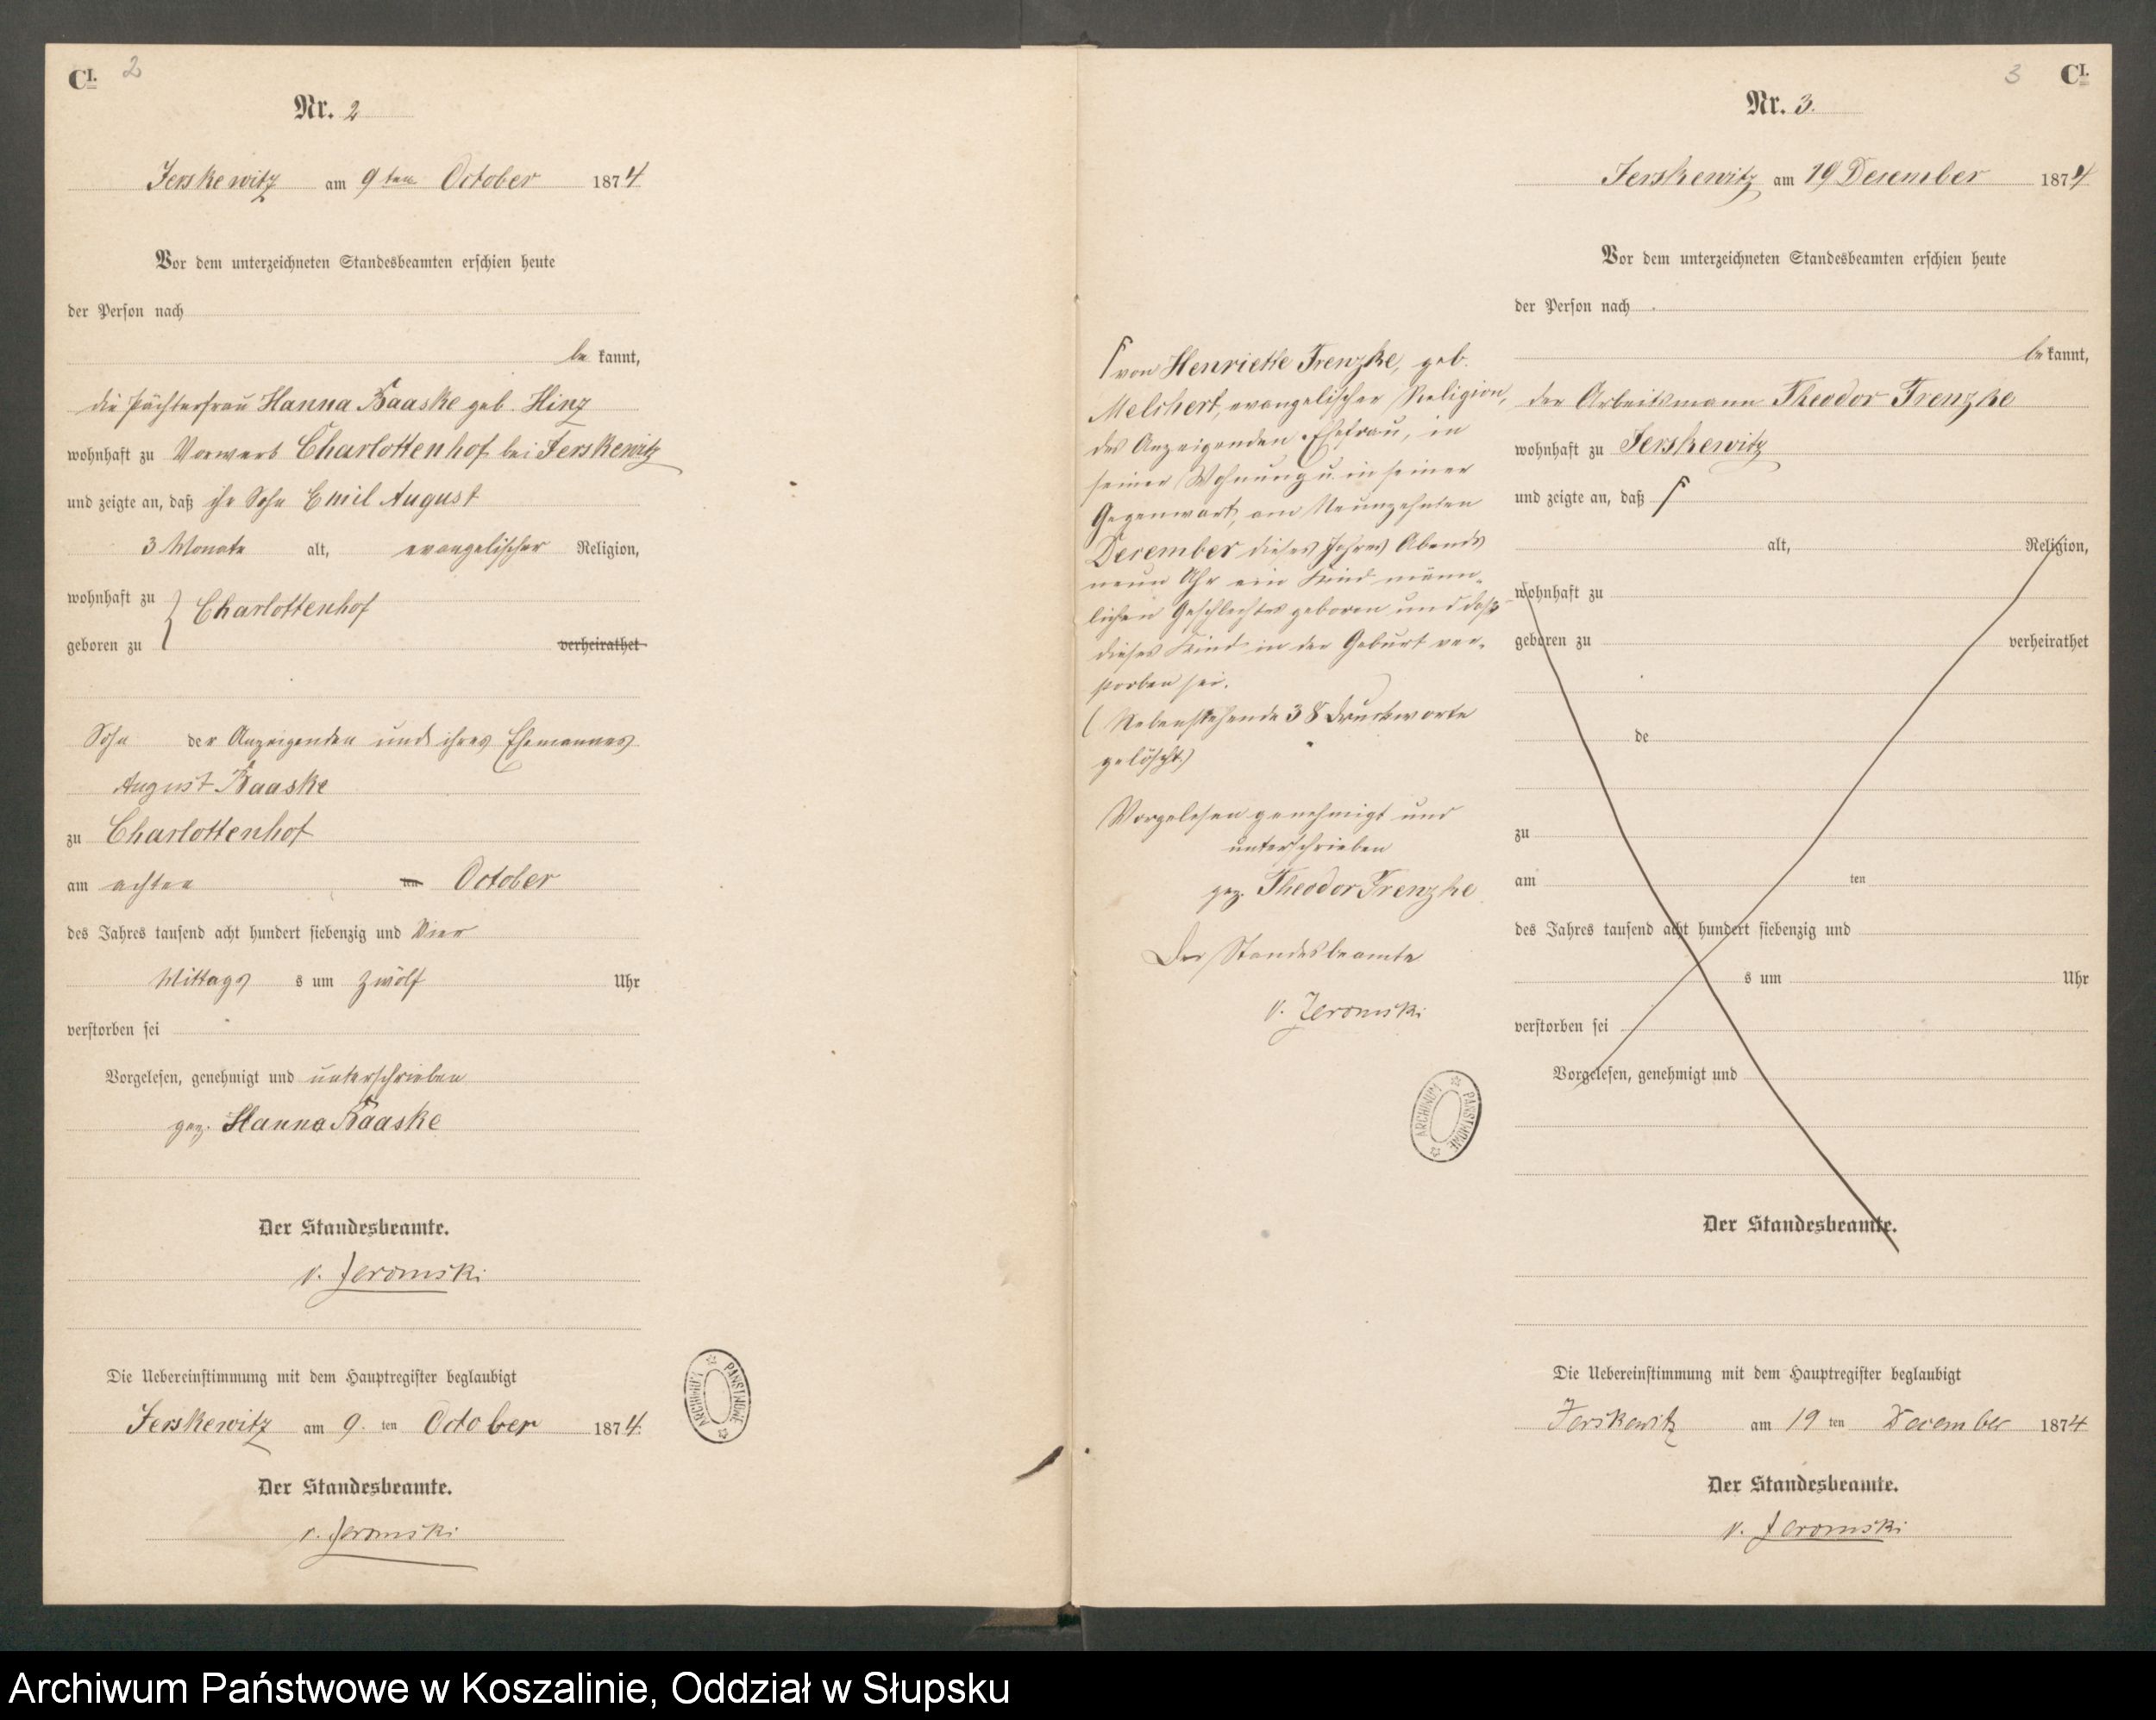 CI. 2
Nr. 2
Jerskewitz am 9ten October 1874
Vor dem unterzeichneten Standesbeamten erschien heute
der Person nach
be kannt,
die Pächterfrau Hanna Baaske geb. Hinz
wohnhaft zu Vorwerk Charlottenhof bei Jerskewitz
und zeigte an, daß ihr Sohn Emil August
3 Monate alt, evangelischer Religion,
wohnhaft zu
Charlottenhof
geboren zu verheirathet
Sohn der Anzeigenden und ihres Ehemannes
August Baaske
zu Charlottenhof
am achten October
des Jahres tausend acht hundert siebenzig und Vier
Mittags s um zwölf Uhr
verstorben sei
Vorgelesen, genehmigt und unterschrieben
gez. Hanna Baaske
Der Standesbeamte.
v. Jeromski
Die Uebereinstimmung mit dem Hauptregister beglaubigt
Jerskewitz am 9. ten October 1874.
Der Standesbeamte.
v. Jeromski
ARCHIWUM PAŃSTWOWE
3 CI.
Nr. 3.
Jerskewitz am 19 December 1874
Vor dem unterzeichneten Standesbeamten erschien heute
der Person nach
be kannt,
der Arbeitsmann Theodor Frenzke
wohnhaft zu Jerskewitz
und zeigte an, daß
alt, Religion,
wohnhaft zu
geboren zu verheirathet
de
zu
am ten
des Jahres tausend acht hundert siebenzig und
s um Uhr
verstorben sei
Vorgelesen, genehmigt und
Der Standesbeamte.
von Henriette Frenzke, geb.
Melchert, evangelischer Religion,
des Anzeigenden Ehefrau, in
seiner Wohnung u. in seiner
Gegenwart, am Neunzehnten
December dieses Jahres Abends
neun Uhr ein Kind männ-
lichen Geschlechtes geboren und daß
dieses Kind in der Geburt ver-
storben sei.
(Nebenstehende 38 Druckworte
gelöscht.)
Vorgelesen genehmigt und
unterschrieben
gez. Theodor Frenzke
Der Standesbeamte
v. Jeromski
ARCHIWUM PAŃSTWOWE
Die Uebereinstimmung mit dem Hauptregister beglaubigt
Jerskewitz am 19 ten December 1874
Der Standesbeamte.
v. Jeromski
Archiwum Państwowe w Koszalinie, Oddział w Słupsku